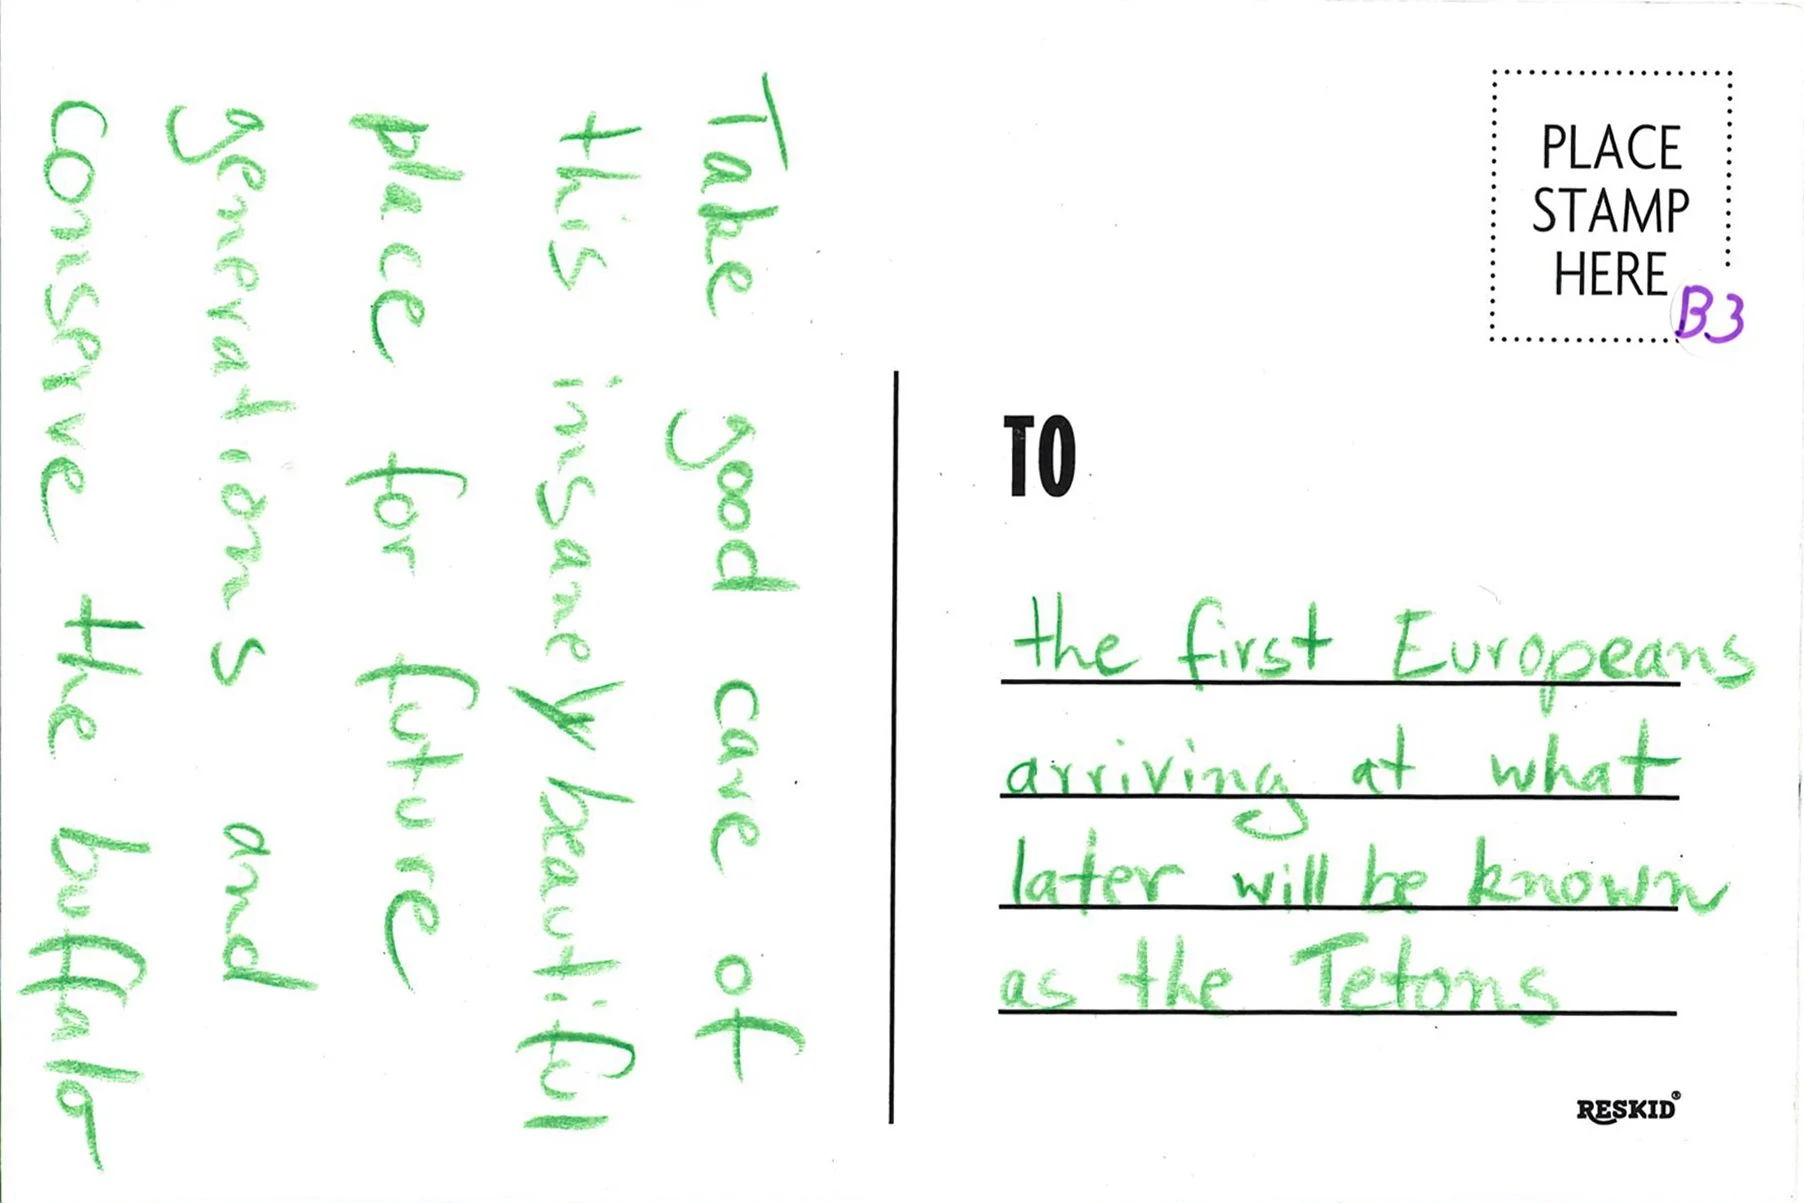 Take good care of
this insaney beautiful
place for future
generations and
conserve the buffalo
PLACE
STAMP
HERE
B3
TO
the first Europeans
arriving at what
later will be known
as the Tetons
RESKID®